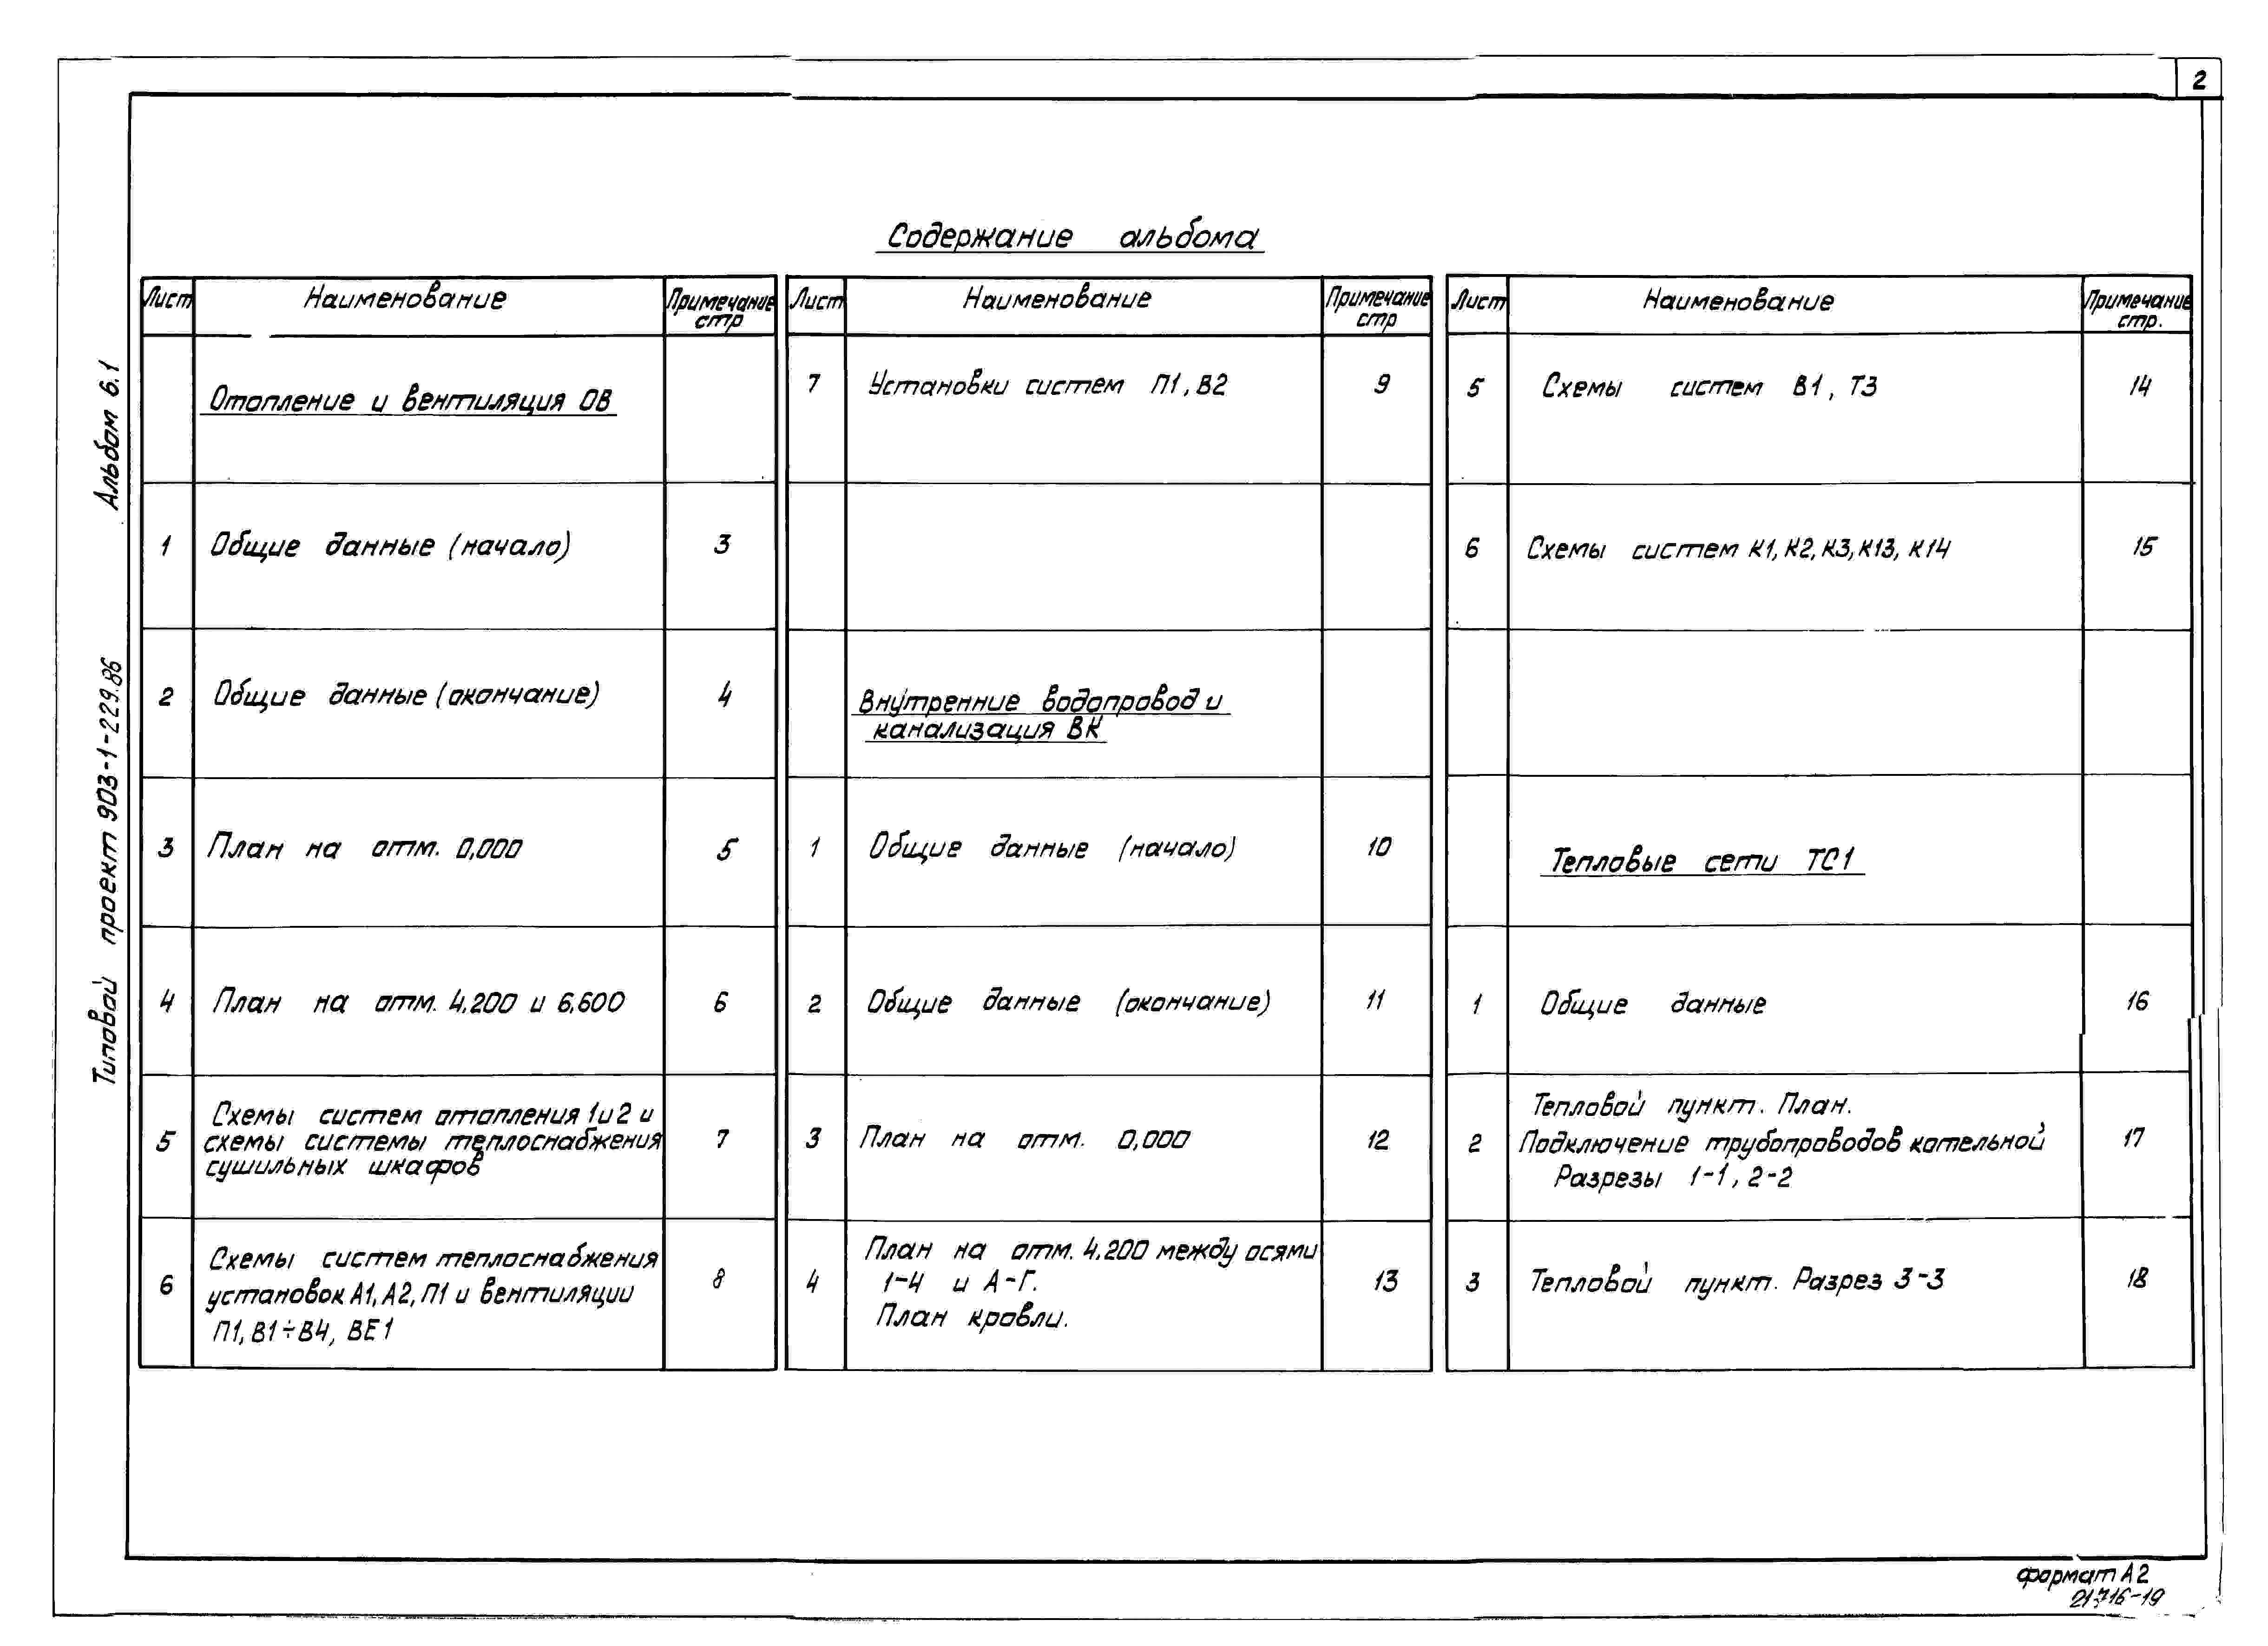 2
Содержание альбома
Альбом 6.1
Типовой проект 903-1-229.86
Лист Наименование Примечание стр
Отопление и вентиляция ОВ
1 Общие данные (начало) 3
2 Общие данные (окончание) 4
3 План на отм. 0,000 5
4 План на отм. 4.200 и 6,600 6
Схемы систем отопления 1и2 и
5 схемы системы теплоснабжения 7
сушильных шкафов
Схемы систем теплоснабжения
6 установок А1, А2, П1 и вентиляции 8
П1, В1÷В4, ВЕ1
Лист Наименование Примечание стр
7 Установки систем П1, В2 9
Внутренние водопровод и
канализация ВК
1 Общие данные (начало) 10
2 Общие данные (окончание) 11
3 План на отм. 0,000 12
План на отм. 4.200 между осями
4 1-4 и А-Г. 13
План кровли.
Лист Наименование Примечание стр.
5 Схемы систем В1, Т3 14
6 Схемы систем К1, К2, К3, К13, К14 15
Тепловые сети ТС1
1 Общие данные 16
Тепловой пункт. План.
2 Подключение трубопроводов котельной 17
Разрезы 1-1, 2-2
3 Тепловой пункт. Разрез 3-3 18
формат А2
21716-19